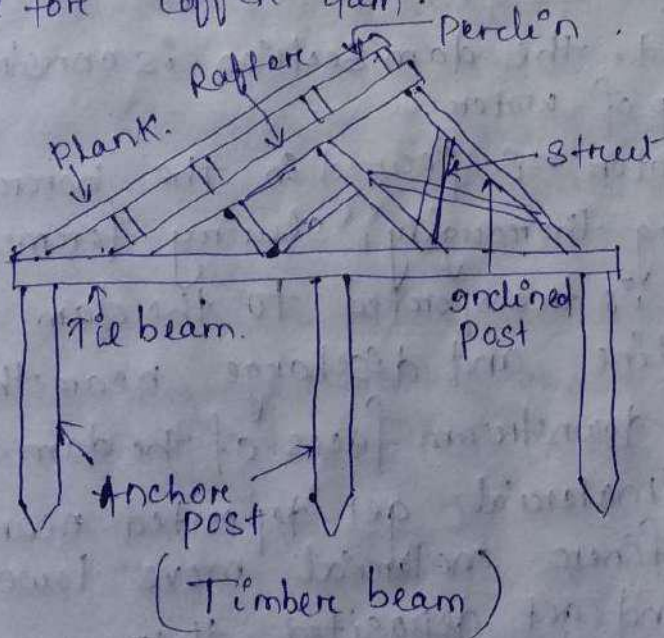 fore coffer dam.
Perclin.
Raftere
Plank.
Street
Tie beam.
inclined
post
Anchore
post
(Timbere beam)